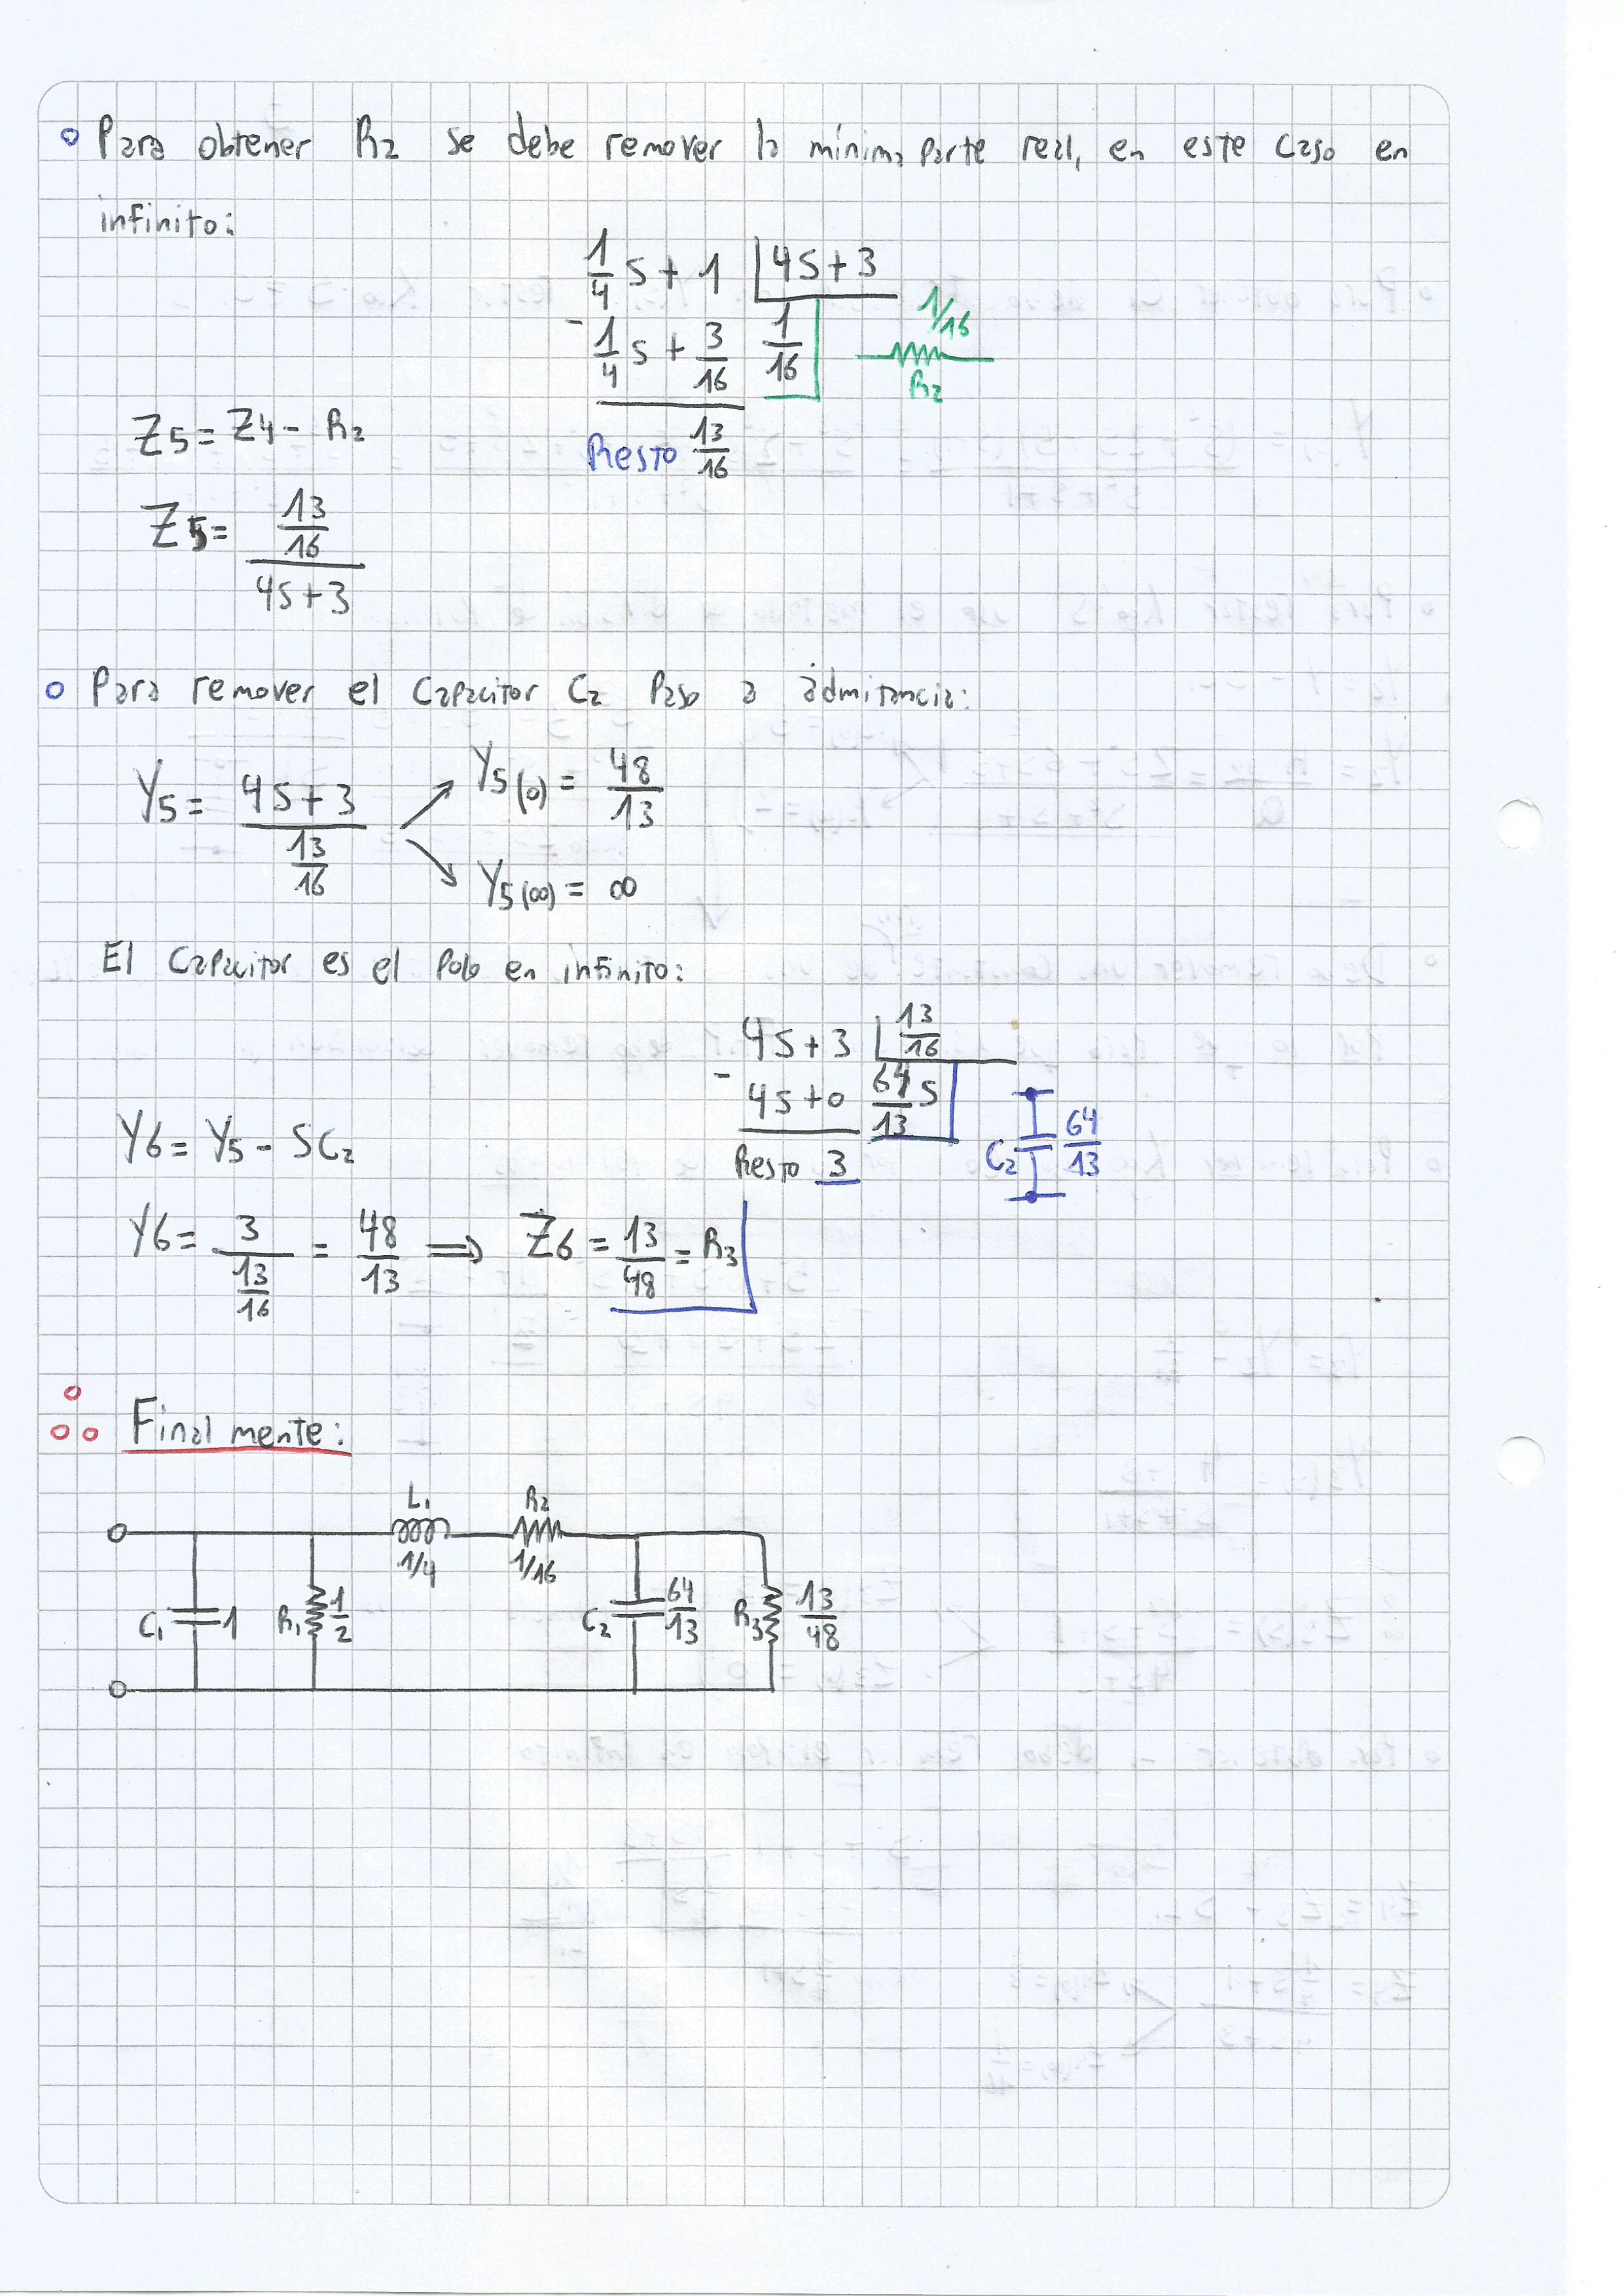 Para obtener R2 se debe remover la mínima parte real, en este caso en
infinito:
1/4 s + 1 | 4s+3
- 1/4 s + 3/16   1/16
Resto 13/16
1/16
R2
Z5 = Z4 - R2
Z5 = (13/16) / (4s+3)
Para remover el Capacitor C2 Paso a admitancia:
Y5 = (4s+3) / (13/16)
Y5(0) = 48/13
Y5(∞) = ∞
El Capacitor es el Polo en infinito:
4s+3 | 13/16
- 4s+0   64/13 s
Resto 3
C2 64/13
Y6 = Y5 - SC2
Y6 = 3 / (13/16) = 48/13 ⟹ Z6 = 13/48 = R3
Finalmente:
L1 R2
1/4 1/16
C1 1 R1 1/2 C2 64/13 R3 13/48